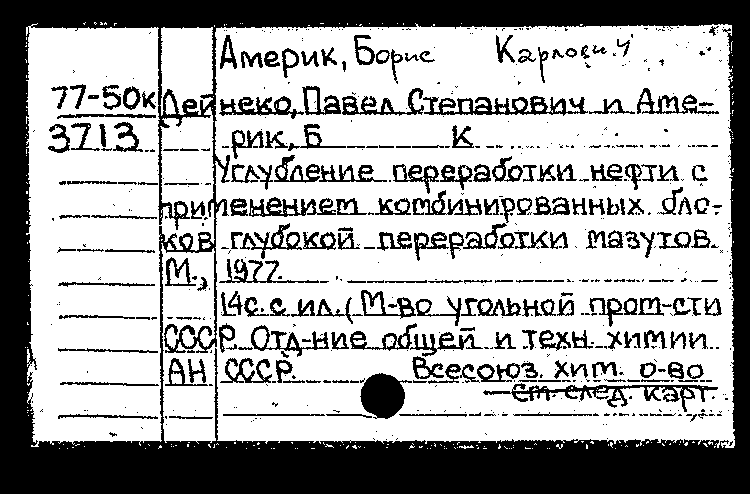 Америк, Борис Карлович
77-50к Дейнеко, Павел Степанович и Аме-
3713 рик, Б К
Углубление переработки нефти с
применением комбинированных бло-
ков глубокой переработки мазутов.
М., 1977.
14с. с ил. (М-во угольной пром-сти
СССР. Отд-ние общей и техн. химии
АН СССР. Всесоюз. хим. о-во
см. след. карт.